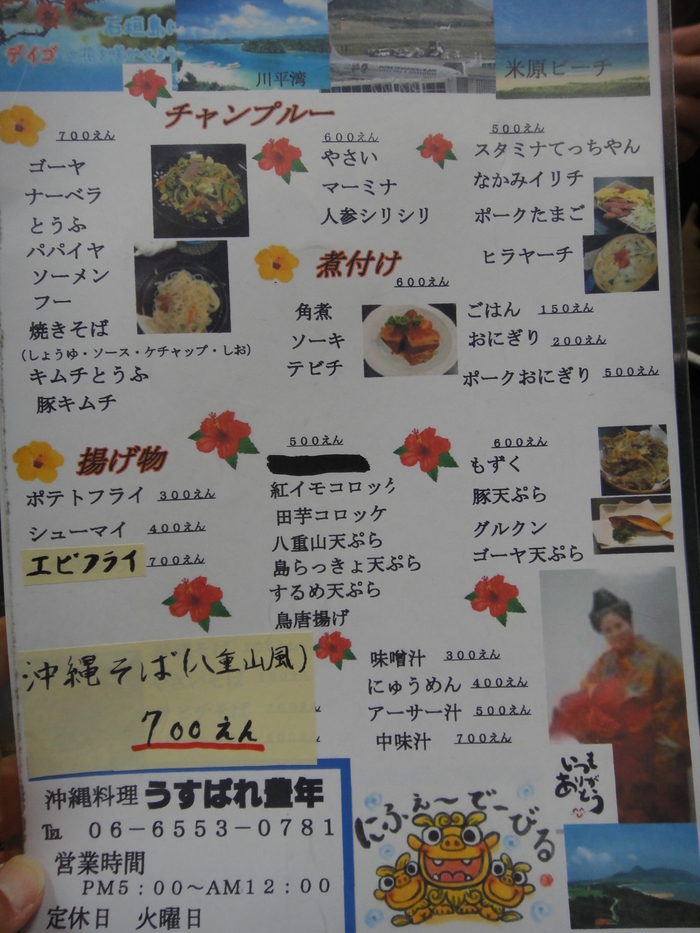 石垣島
デイゴ
川平湾
米原ビーチ
チャンプルー
700えん
ゴーヤ
ナーベラ
とうふ
パパイヤ
ソーメン
フー
焼きそば
（しょうゆ・ソース・ケチャップ・しお）
キムチとうふ
豚キムチ
600えん
やさい
マーミナ
人参シリシリ
500えん
スタミナてっちゃん
なかみイリチ
ポークたまご
ヒラヤーチ
煮付け
600えん
角煮
ソーキ
テビチ
ごはん 150えん
おにぎり 200えん
ポークおにぎり 500えん
揚げ物
ポテトフライ 300えん
シューマイ 400えん
エビフライ 700えん
500えん
紅イモコロッケ
田芋コロッケ
八重山天ぷら
島らっきょ天ぷら
するめ天ぷら
鳥唐揚げ
600えん
もずく
豚天ぷら
グルクン
ゴーヤ天ぷら
沖縄そば(八重山風)
700えん
味噌汁 300えん
にゅうめん 400えん
アーサー汁 500えん
中味汁 700えん
沖縄料理 うすばれ豊年
℡ 06－6553－0781
営業時間
PM5：00～AM12：00
定休日 火曜日
にふぇ～でーびる
いつも
ありがとう